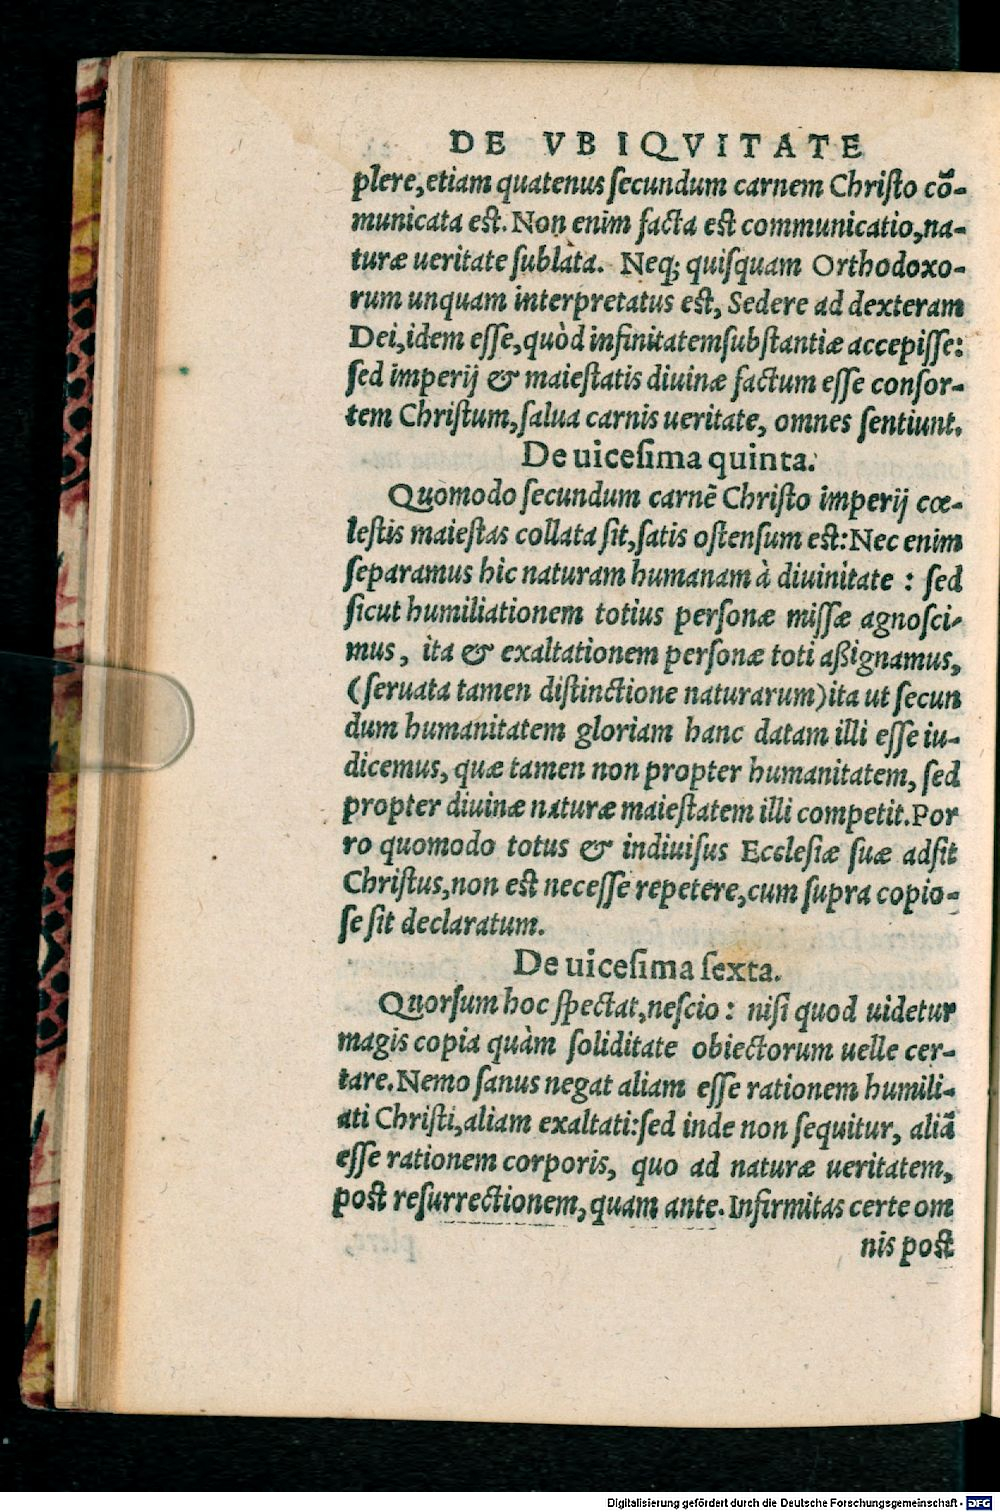 DE VBIQVITATE
plere, etiam quatenus ſecundum carnem Chriſto cõ-
municata eſt. Non enim facta eſt communicatio, na-
turæ ueritate ſublata. Neq; quiſquam Orthodoxo-
rum unquam interpretatus eſt, Sedere ad dexteram
Dei, idem eſſe, quòd infinitatem ſubſtantiæ accepiſſe:
ſed imperij & maieſtatis diuinæ factum eſſe conſor-
tem Chriſtum, ſalua carnis ueritate, omnes ſentiunt.
De uiceſima quinta.
Quomodo ſecundum carnẽ Chriſto imperij cœ-
leſtis maieſtas collata ſit, ſatis oſtenſum eſt: Nec enim
ſeparamus hic naturam humanam à diuinitate : ſed
ſicut humiliationem totius perſonæ miſſæ agnoſci-
mus, ìta & exaltationem perſonæ toti aßignamus,
(ſeruata tamen diſtinctione naturarum) ita ut ſecun
dum humanitatem gloriam hanc datam illi eſſe iu-
dicemus, quæ tamen non propter humanitatem, ſed
propter diuinæ naturæ maieſtatem illi competit. Por
ro quomodo totus & indiuiſus Eccleſiæ ſuæ adſit
Chriſtus, non eſt neceſſe repetere, cum ſupra copio-
ſe ſit declaratum.
De uiceſima ſexta.
Quorſum hoc ſpectat, neſcio : niſi quod uidetur
magis copia quàm ſoliditate obiectorum uelle cer-
tare. Nemo ſanus negat aliam eſſe rationem humili-
ati Chriſti, aliam exaltati: ſed inde non ſequitur, aliã
eſſe rationem corporis, quo ad naturæ ueritatem,
poſt reſurrectionem, quam ante. Infirmitas certe om
nis poſt
Digitalisierung gefördert durch die Deutsche Forschungsgemeinschaft - DFG